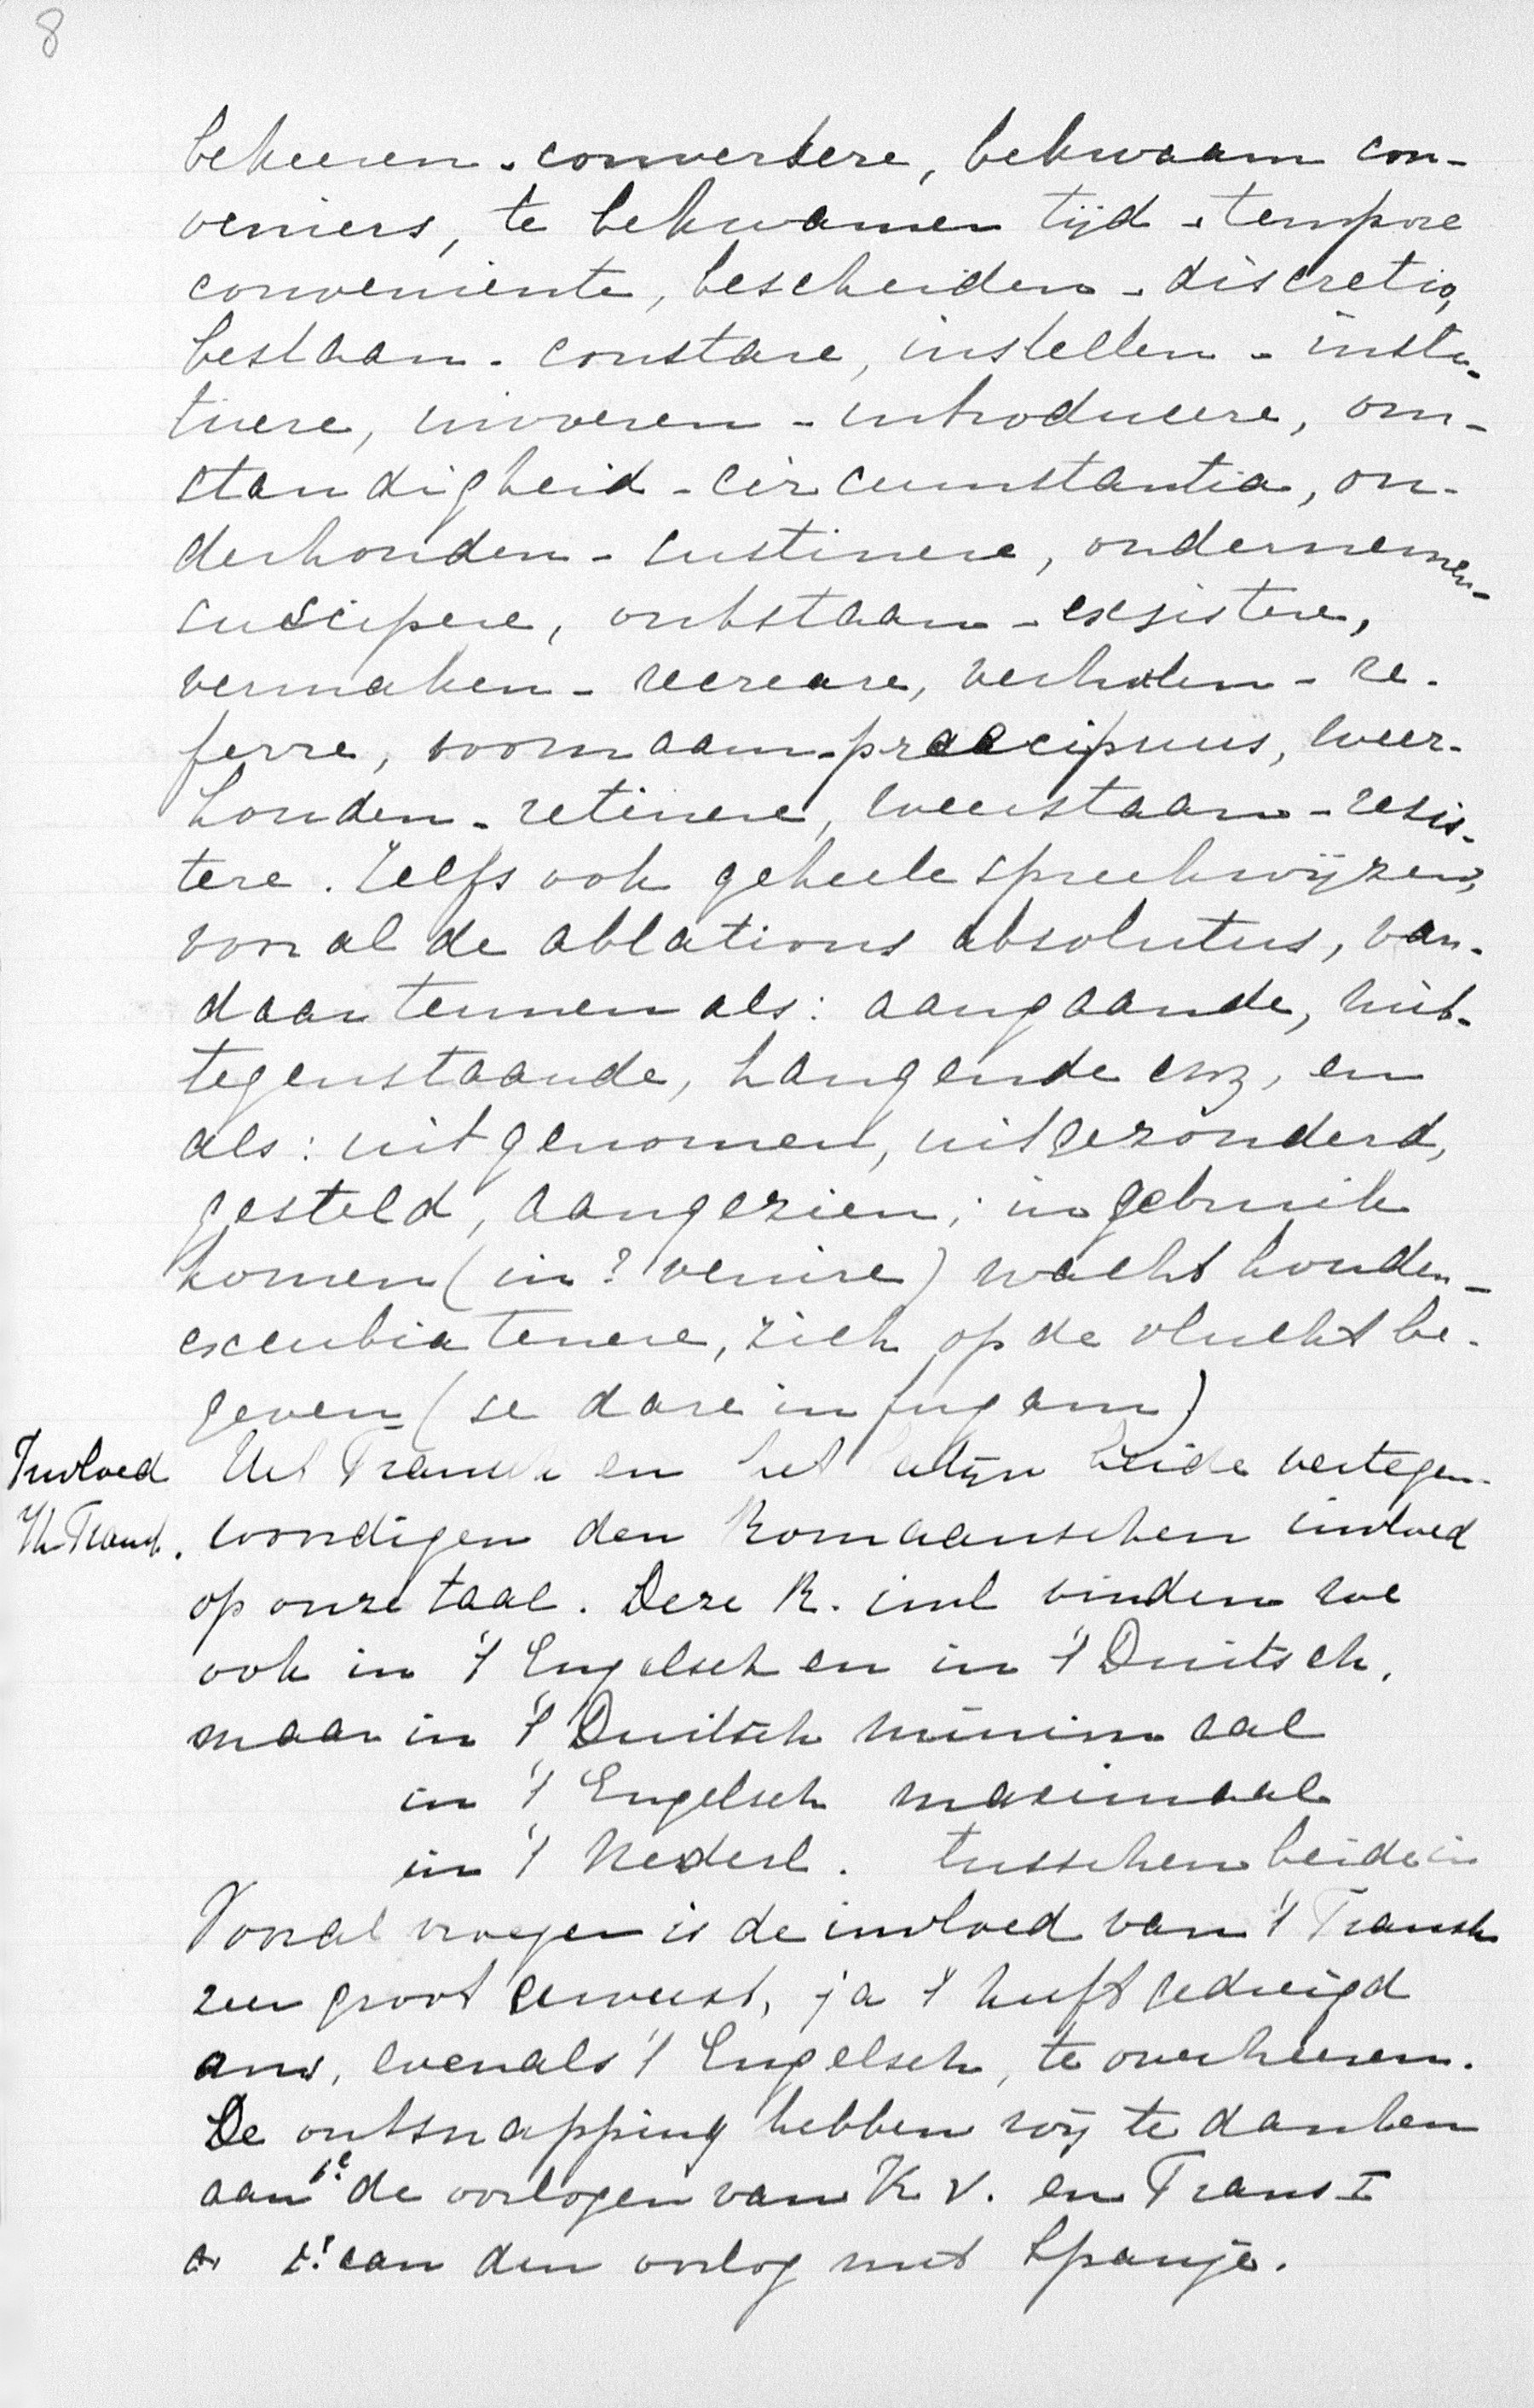 8
bekeeren - convertere, bekwaam con-
veniers, te bekwamen tijd - tempore
conveniente, bescheiden - discretio,
bestaan - constare, instellen - insti-
tuere, invoeren - introducere, om-
standigheid - circumstantia, on-
derhouden - sustinere, ondernemen -
suscipere, ontstaan - exsistere,
vermaken - recreare, verhalen - re-
ferre, voornaam - praecipuus, weer-
houden - retinere, weerstaan - resis-
tere. Zelfs ook geheele spreekwijzen,
vooral de ablativus absolutus, van-
daar termen als: aangaande, niet-
tegenstaande, hangende enz, en
als: uitgenomen, uitgezonderd,
gesteld, aangezien; in gebruik
komen (in? venire) wacht houden -
excubia tenere, zich op de vlucht be-
geven (se dare in fugam)
Invloed Het Fransch en het Latijn beide vertegen-
v/h Fransch. woordigen den Romaanschen invloed
op onze taal. Deze R. invl vinden we
ook in 't Engelsch en in 't Duitsch,
maar in 't Duitsch minimaal
in 't Engelsch maximaal
in 't Nederl. tusschen beide in
Vooral vroeger is de invloed van 't Fransch
zeer groot geweest, ja 't heeft gedreigd
ons, evenals 't Engelsch, te overheeren.
De ontsnapping hebben wij te danken
aan 1e de oorlogen van K V. en Frans I
2e aan den oorlog met Spanje.